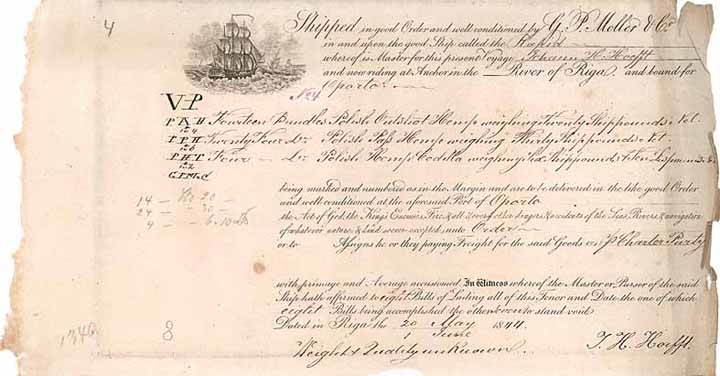 4
Shipped in good Order and well conditioned by G. P. Moller & Co
in and upon the good Ship called the Rapid
whereof is Master for this present Voyage Johann H. Hoefft
and now riding at Anchor in the River of Riga and bound for
No 4
Oporto
V-P
P A H Fourteen Bundles Polish Outshot Hemp weighing Twenty Shippounds Net.
124
P P H Twenty Four Do. Polish Pass Hemp weighing Thirty Shippounds Net.
126
P H C Four Do. Polish Hemp Codilla weighing Six Shippounds & Ten Lispounds
122
G.P.M.&C
being marked and numbered as in the Margin and are to be delivered in the like good Order
and well conditioned at the aforesaid Port of Oporto
the Act of God, the King's Enemies, Fire & all & every other dangers & accidents of the Seas, Rivers & navigation
of whatever nature & kind soever excepted, unto Order
or to Assigns he or they paying Freight for the said Goods as p Charter Party
14 — 20
24 — 30
4 — 6.10
with primage and Average accustomed In Witness whereof the Master or Purser of the said
Ship hath affirmed to eight Bills of Lading all of this Tenor and Date the one of which
eight Bills being accomplished the other seven to stand void
Dated in Riga the 20 May 1844
1 June
8
Weight & Quality unknown.
J. H. Hoefft.
1346